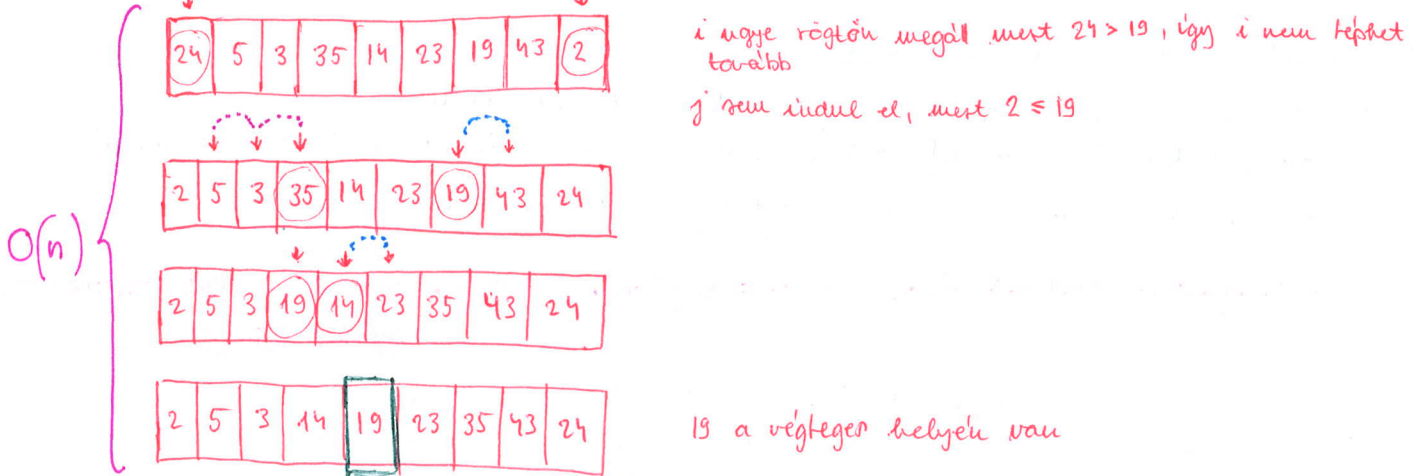 24 5 3 35 14 23 19 43 2
i ugye rögtön megáll mert 24 > 19, így i nem léphet
tovább
j sem indul el, mert 2 ≤ 19
2 5 3 35 14 23 19 43 24
O(n)
2 5 3 19 14 23 35 43 24
2 5 3 14 19 23 35 43 24
19 a végleges helyén van